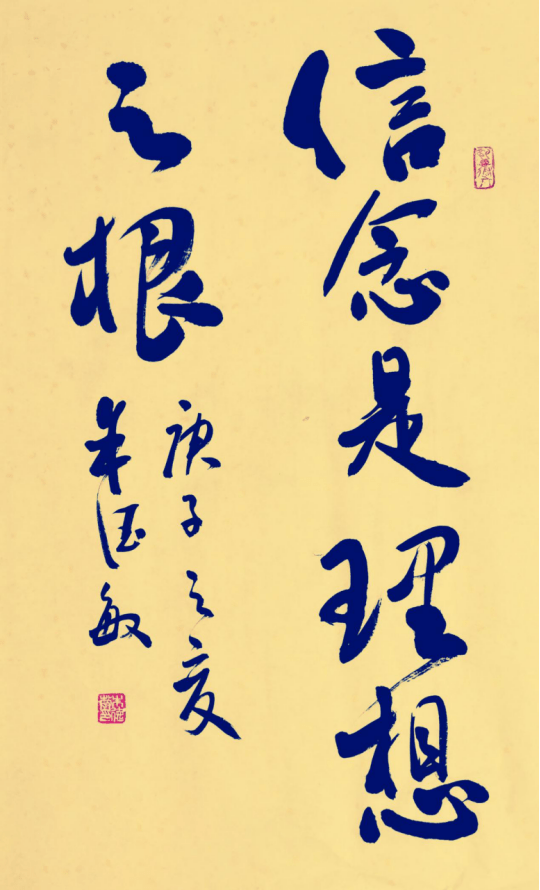 信念是理想
之根
庚子之夏
朱德敏